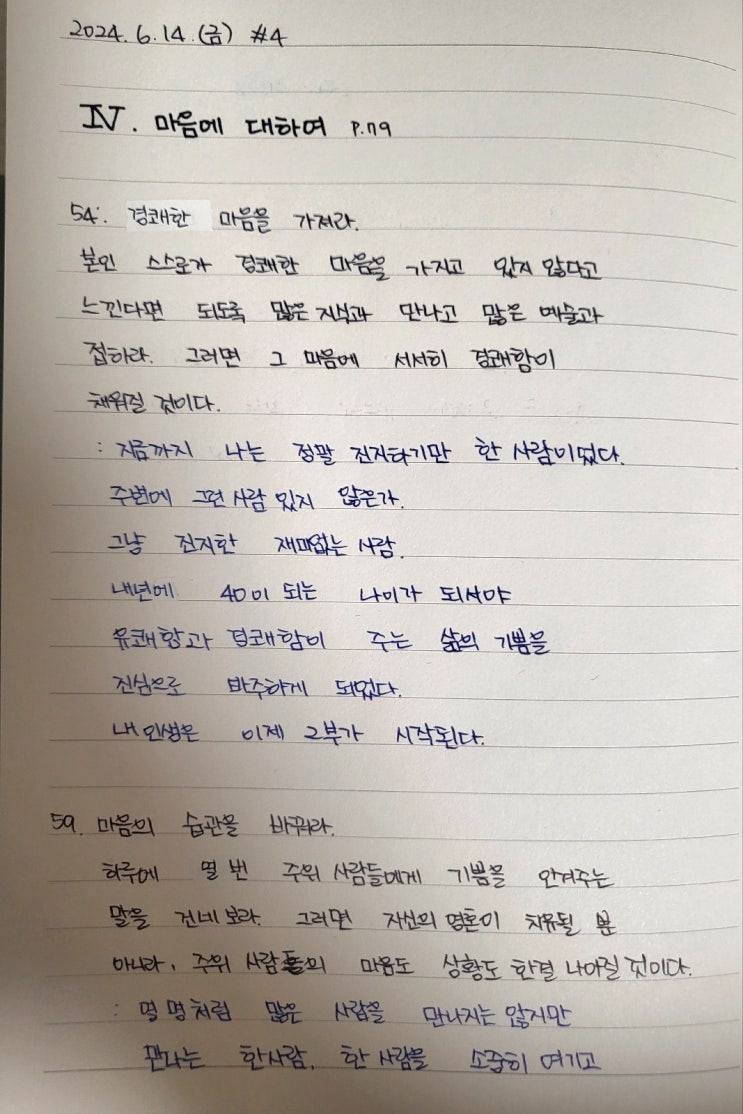 2024. 6. 14. (금) #4
Ⅳ. 마음에 대하여 P.79
54. 경쾌한 마음을 가져라.
본인 스스로가 경쾌한 마음을 가지고 있지 않다고
느낀다면 되도록 많은 지식과 만나고 많은 예술과
접하라. 그러면 그 마음에 서서히 경쾌함이
채워질 것이다.
: 지금까지 나는 정말 진지하기만 한 사람이었다.
주변에 그런 사람 있지 않은가.
그냥 진지한 재미없는 사람.
내년에 40이 되는 나이가 되서야
유쾌함과 경쾌함이 주는 삶의 기쁨을
진심으로 마주하게 되었다.
내 인생은 이제 2부가 시작된다.
59. 마음의 습관을 바꿔라.
하루에 열 번 주위 사람들에게 기쁨을 안겨주는
말을 건네 보라. 그러면 자신의 영혼이 치유될 뿐
아니라, 주위 사람들의 마음도 상황도 한결 나아질 것이다.
: 열 명처럼 많은 사람을 만나지는 않지만
만나는 한사람, 한 사람을 소중히 여기고